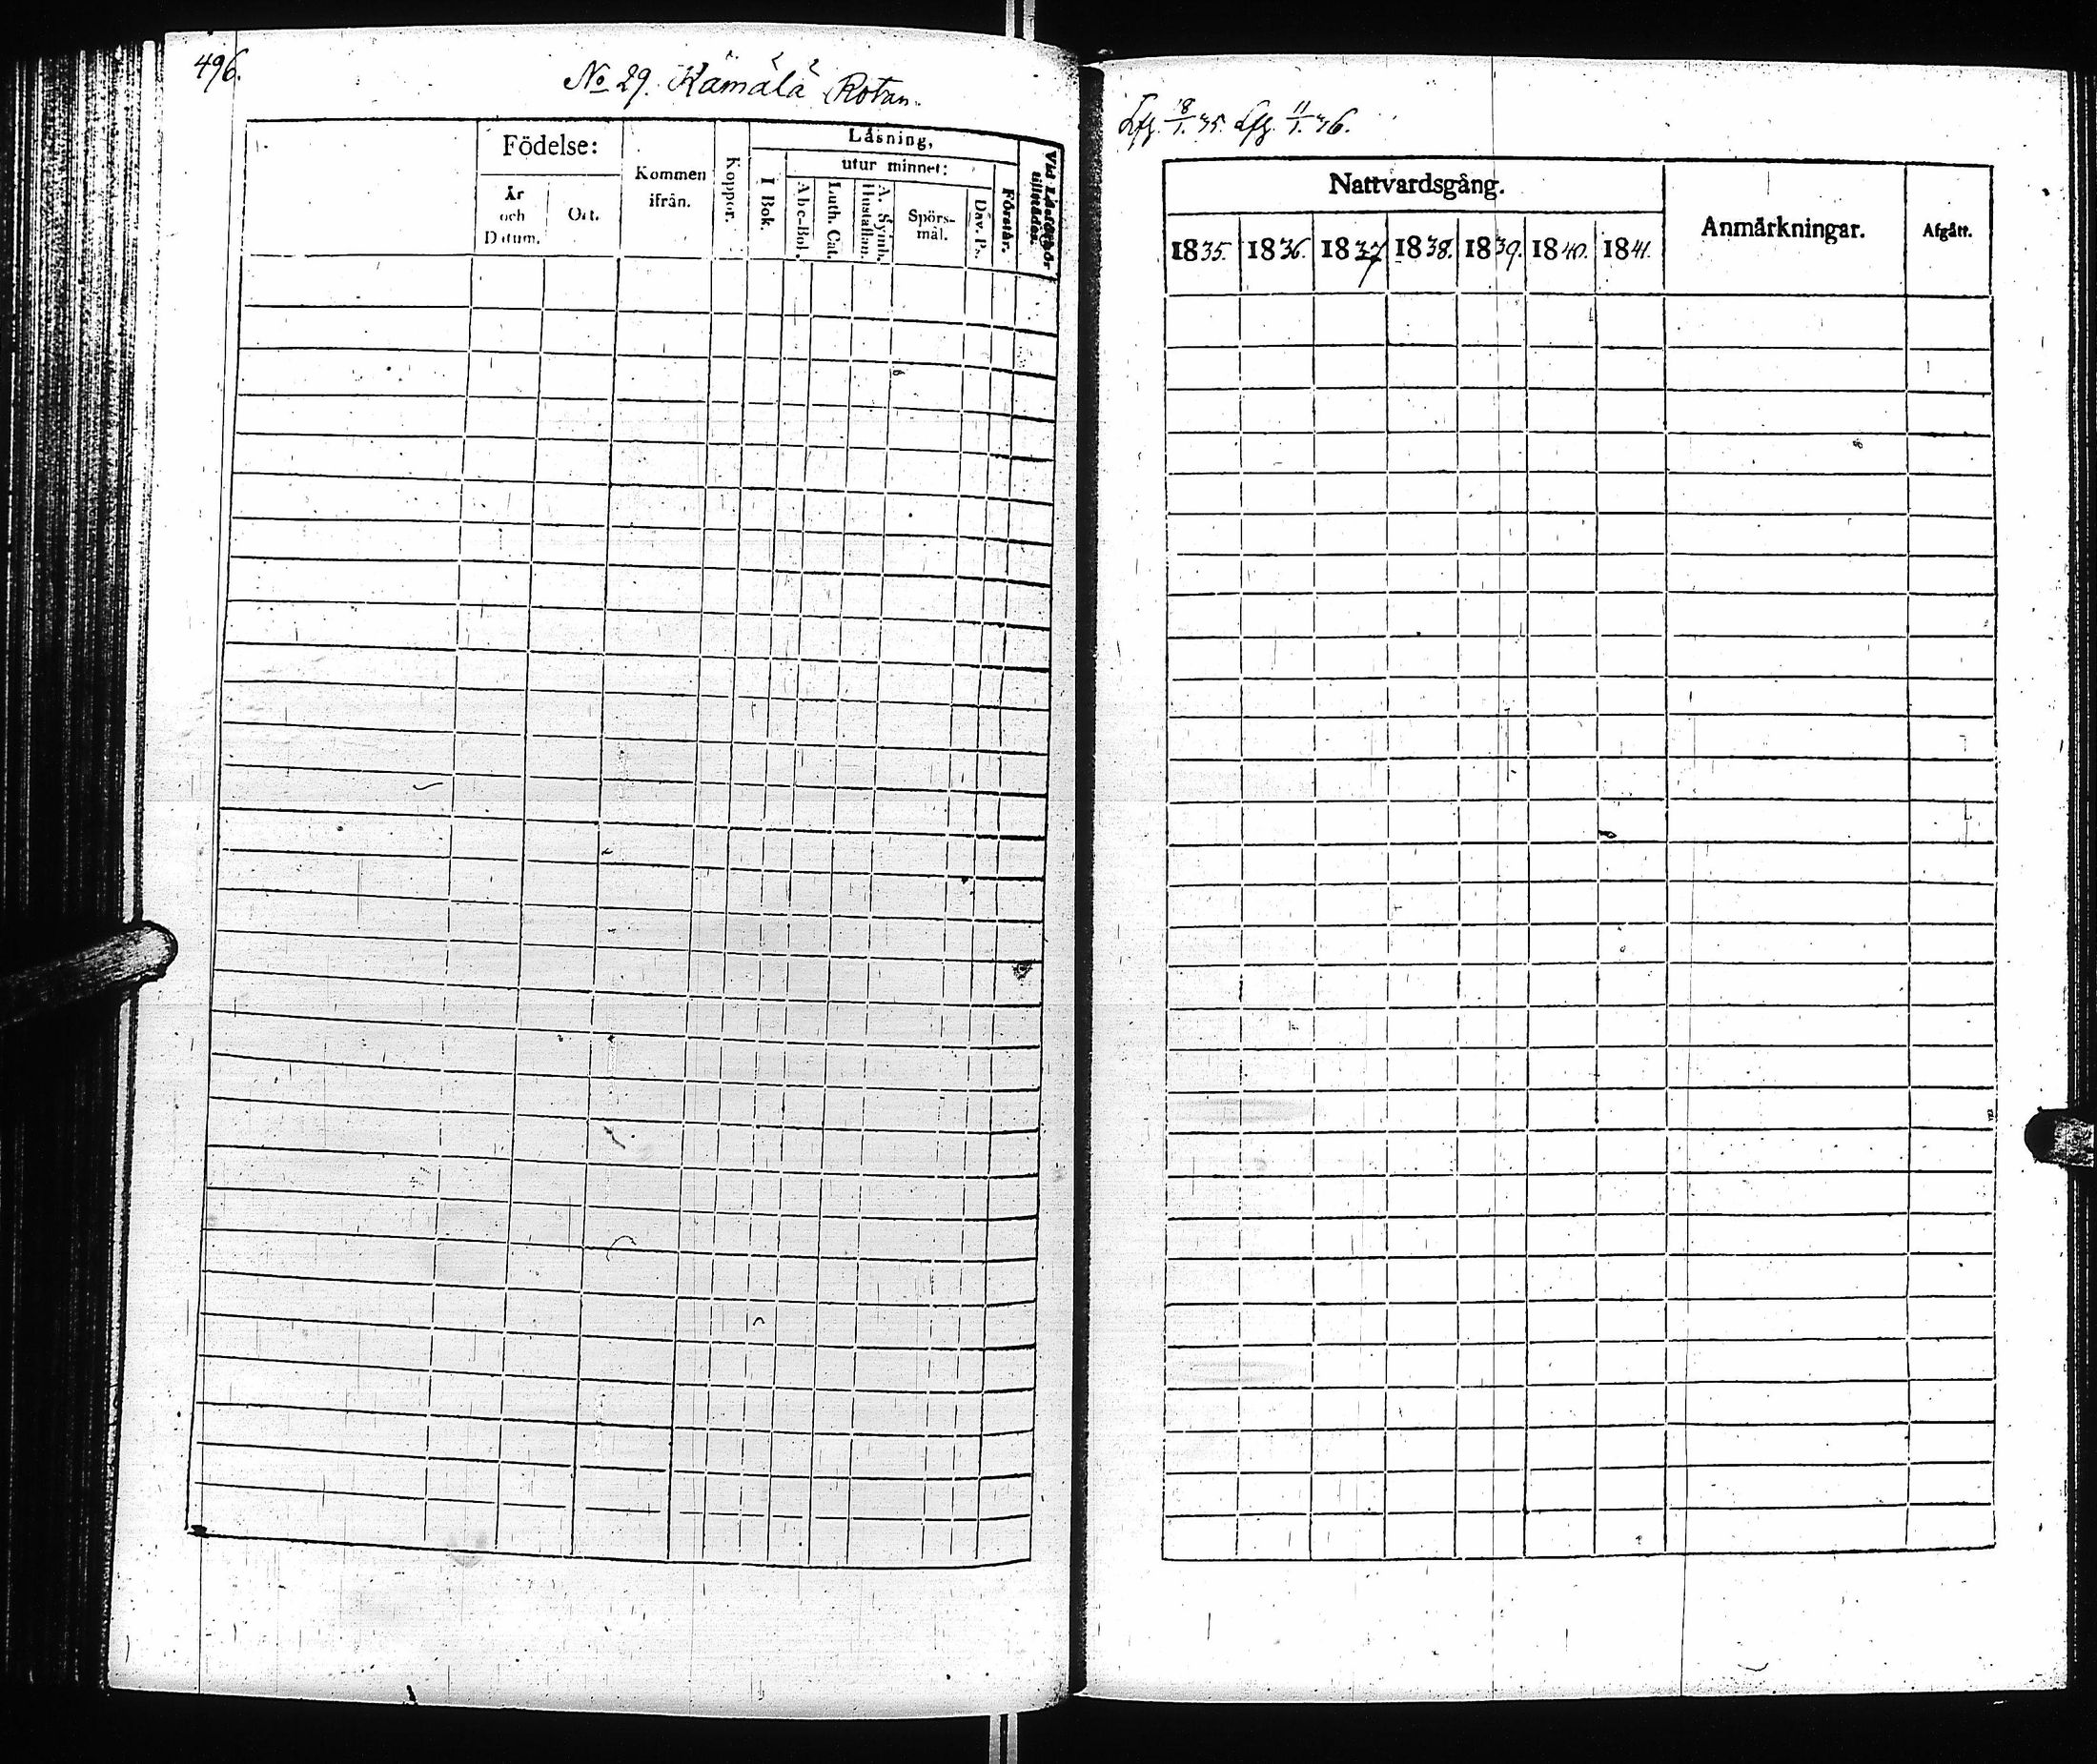 496.
No 29. Kämälä Rotan.
Födelse:
År
och
Datum.
Ort.
Kommen
ifrån.
Koppor.
Läsning,
I Bok.
utur minnet:
Abc-Bok.
Luth. Cat.
A. Symb.
Hustaflan.
Spörs-
mål.
Dav. Ps.
Förstår.
Vid Läsförhör
tillstädes.
Lfg. 18/1. 35. Lfg. 11/1. 36.
Nattvardsgång.
1835. 1836. 1837 1838. 1839. 1840. 1841.
Anmärkningar.
Afgått.